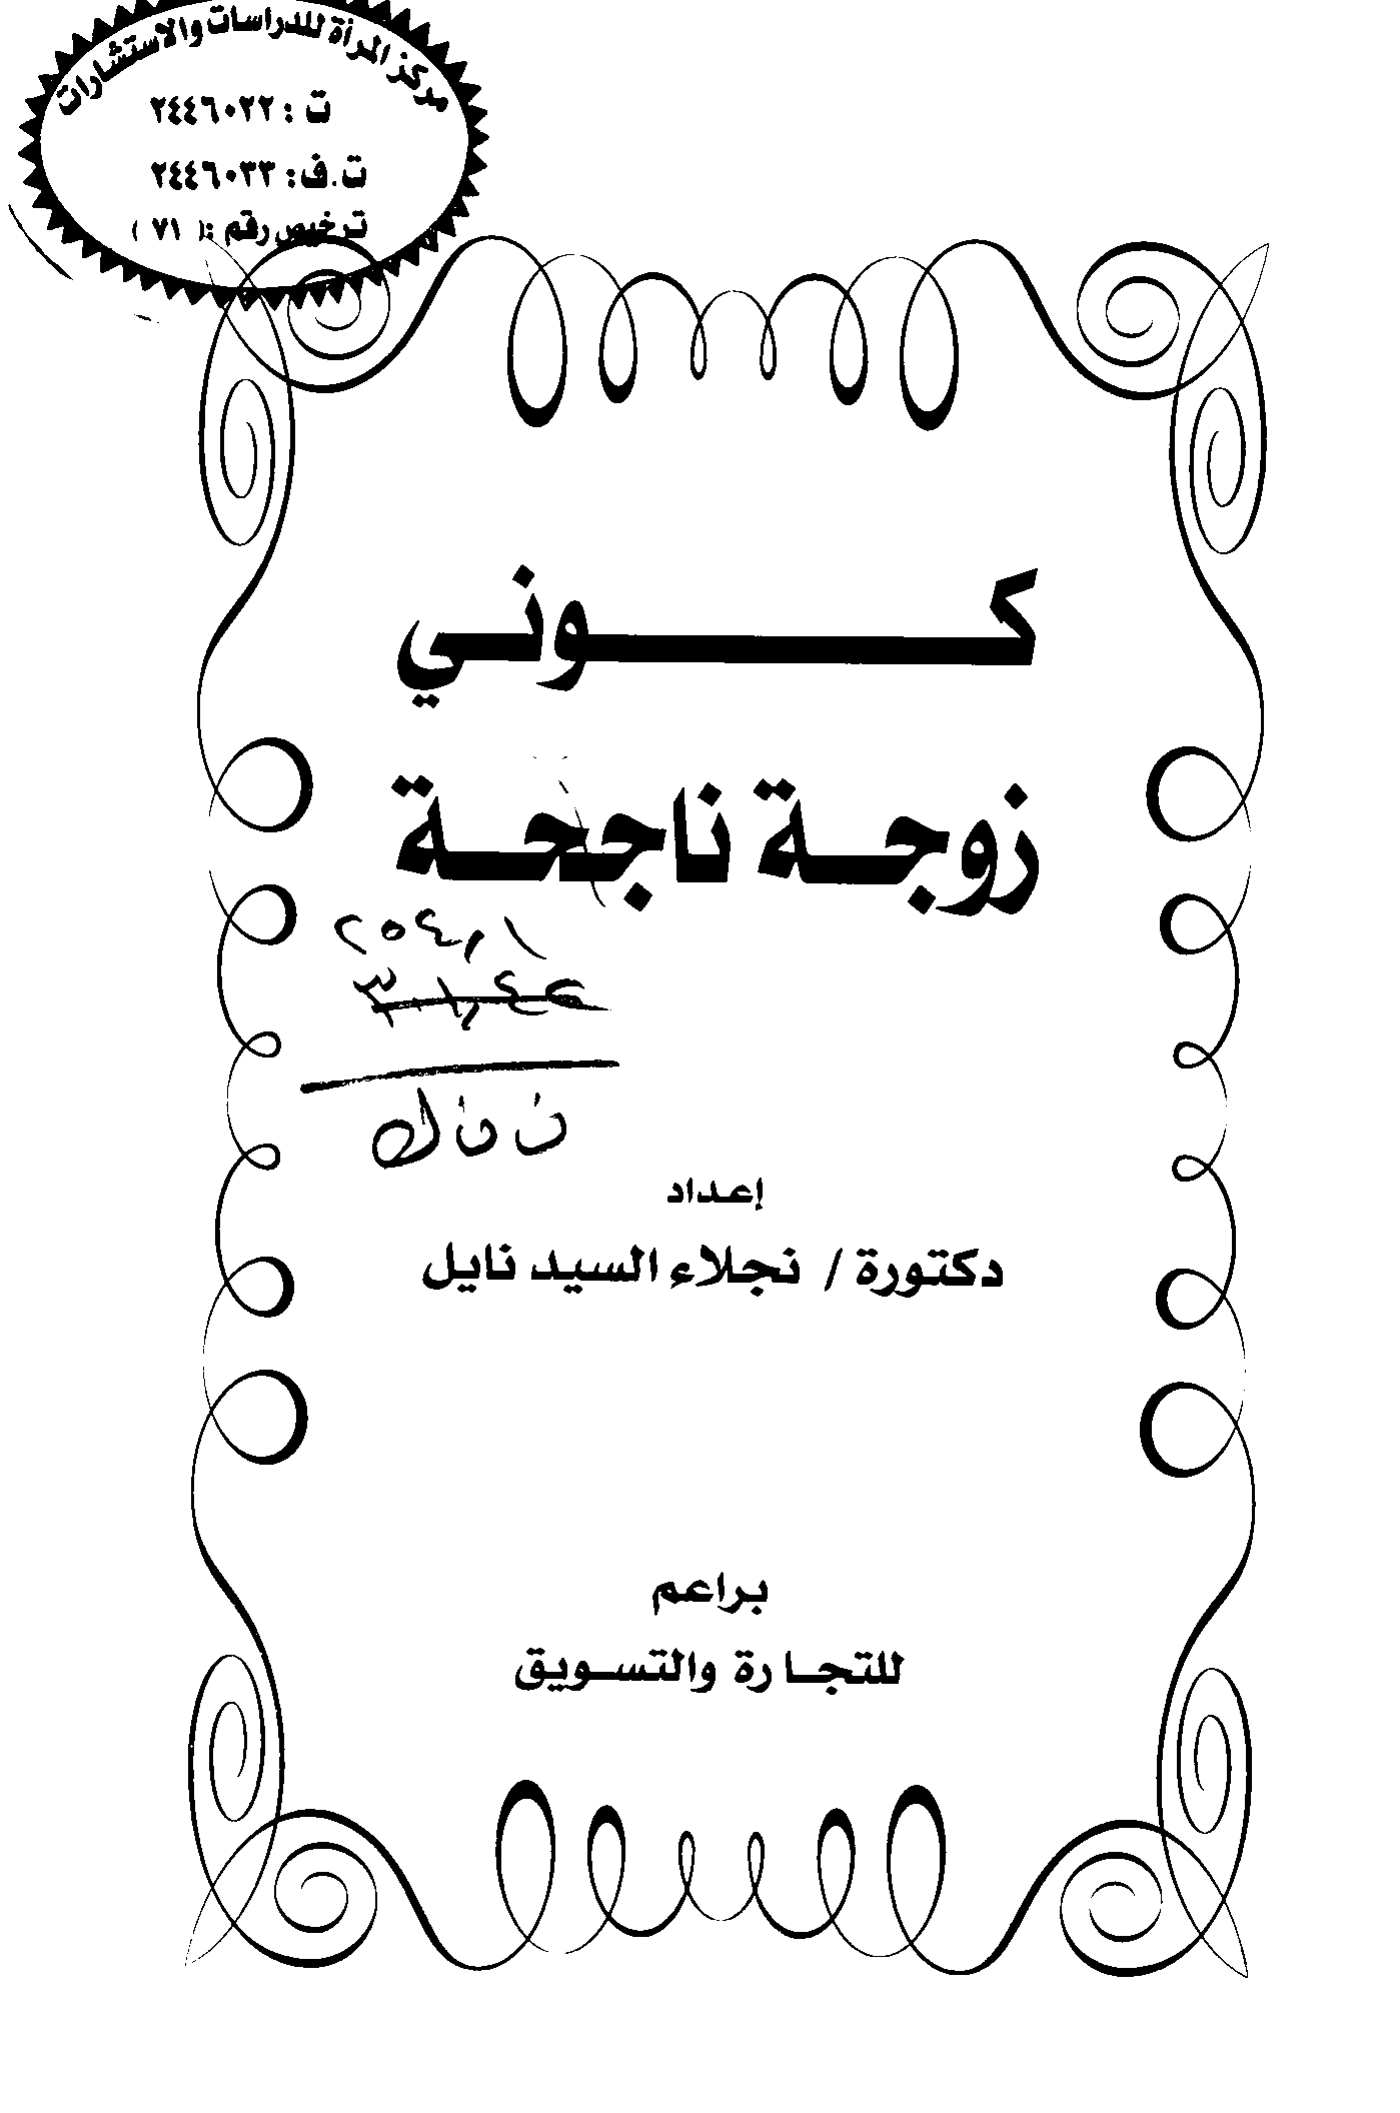 مركز المرأة للدراسات والاستشارات
ت : ٢٤٤٦٠٢٢
ت.ف: ٢٤٤٦٠٣٣
ترخيص رقم :( ٧١ )
كـــوني
زوجـة ناجحـة
٢٥٤,١
إعداد
دكتورة / نجلاء السيد نايل
براعم
للتجارة والتسويق